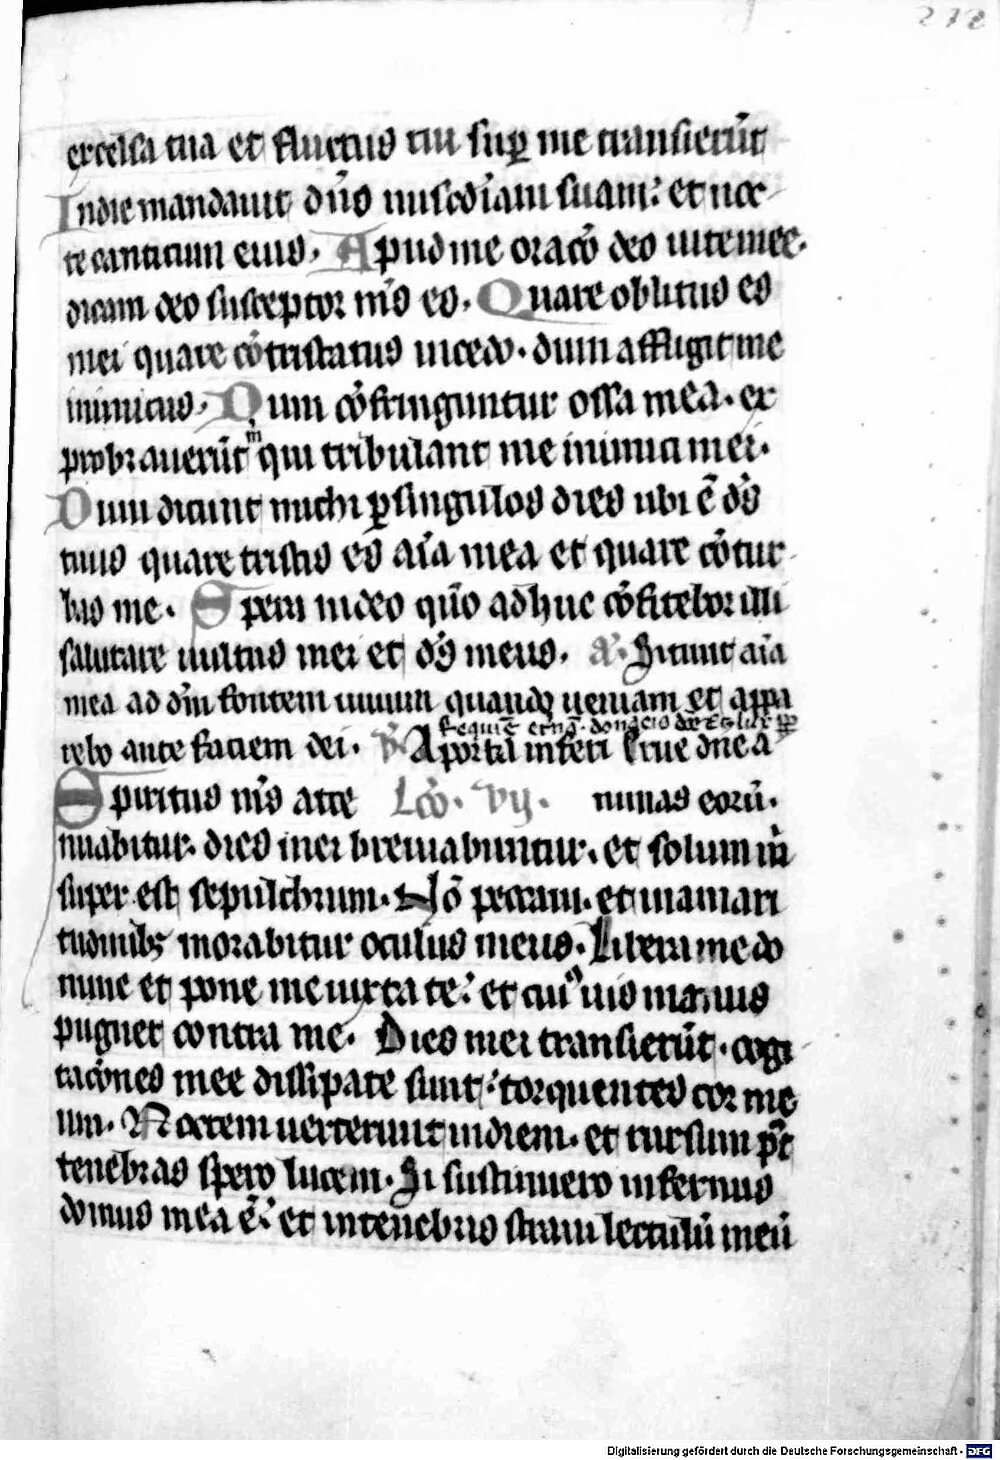 272
excelsa tua et fluctus tui suꝑ me transierūt
Indie mandauit dn̄s miscd̓iam suam: et noc
te canticum eius. Apud me orac̄o deo uite mee.
dicam deo susceptor m̄s es. Quare oblitus es
mei quare cōtristatus incedo. dum affligit me
inimicus. Dum cōfringuntur ossa mea. ex
probrauerūt m̄ qui tribulant me inimici mei.
Dum dicunt michi ꝑ singulos dies ubi ē ds̄
tuus quare tristis es aīa mea et quare cōtur
bas me. Spera indeo qm̄o adhuc cōfitebor illi
salutare uultus mei et ds̄ meus. a. Sitiuit aīa
mea ad dm̄ fontem uiuum quando ueniam et appa
requiē etnā. dona eis dn̄e Et lux ꝑp
rebo ante faciem dei. v̄ A porta inferi Erue dn̄e a
Spiritus m̄s atte Lc̄o. vij. nimas eorū.
nuabitur. dies mei breuiabuntur. et solum m̄
super est sepulchrum. Nō peccaui. et in amari
tudinibꝫ morabitur oculus meus. Libera me do
mine et pone me iuxta te: et cuiusuis manus
pugnet contra me. Dies mei transierūt. cogi
tac̄ones mee dissipate sunt: torquentes cor me
um. Noctem uerterunt indiem. et rursum pt̄
tenebras spero lucem. Si sustinuero infernus
domus mea ē: et intenebris straui lectulū meū
Digitalisierung gefördert durch die Deutsche Forschungsgemeinschaft - DFG